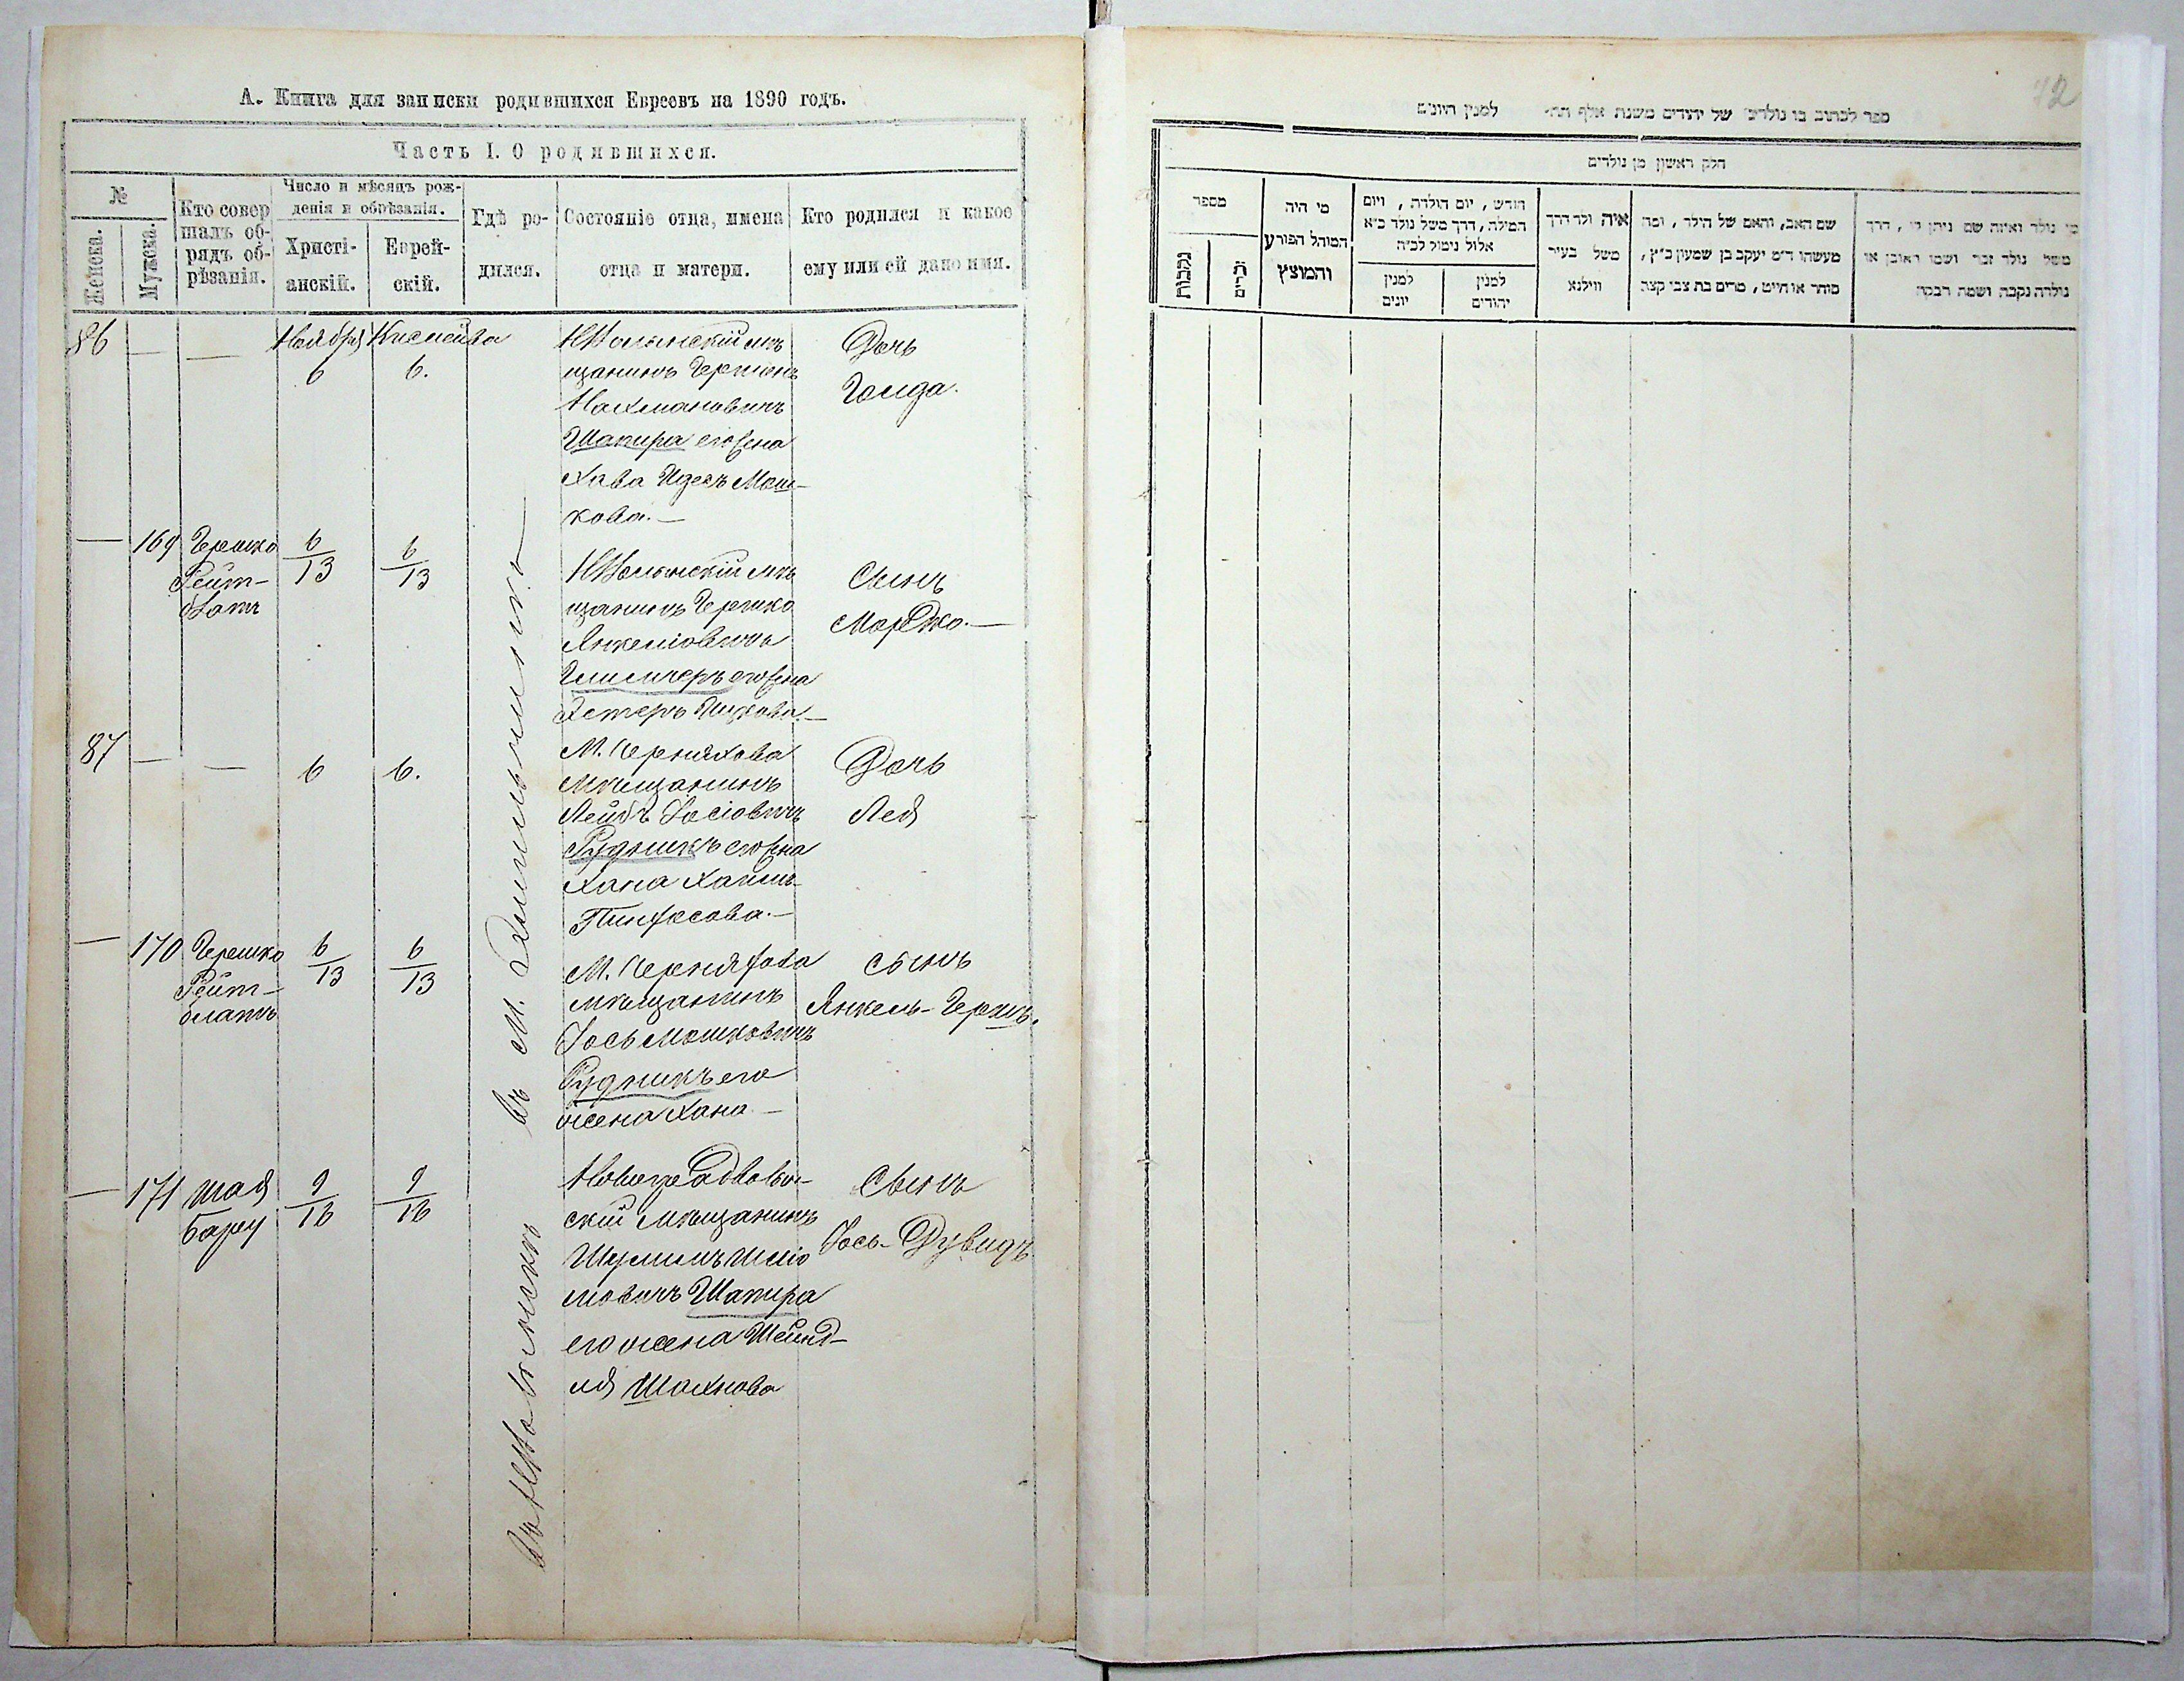 А. Книга для записки родившихся Евреевъ на 1890 годъ.
Часть I. О родившихся.
№
Женска.
Мужска.
Кто совер
шалъ об-
рядъ об-
рѣзанія.
Число и мѣсяцъ рож-
денія и обрѣзанія.
Христі-
анскій.
Еврей-
скій.
Гдѣ ро-
дился.
Состояніе отца, имена
отца и матери.
Кто родился и какое
ему или ей дано имя.
86
— —
Ноября
6
Кислейва
6.
НВолынскій мѣ
щанинъ Гершонъ
Нахмановичъ
Шапира его жена
Хава Идесъ Мош-
кова.—
Дочь
Голда.
— 169
Гершко
Рейт-
блатъ
6
13
6
13
НВолынскій мѣ
щанинъ Гершко
Янкеліовичъ
его жена
Эстеръ Ицкова.—
Сынъ
Мордко.—
87
— —
6
6.
М. Черняхова
мѣщанинъ
Лейбъ Іосіовичъ
Рудникъ его жена
Хана Хаимъ-
Пинхасова.—
Дочь
Лея
— 170
Гершко
Рейт-
блатъ
6
13
6
13
М. Черняхова
мѣщанинъ
Іось Мошковичъ
Рудникъ его
жена Хана —
сынъ
Янкель-Гершъ.
— 171
Шая
Бару
9
16
9
16
Новоградволын-
скій мѣщанинъ
Шулимъ Шлiо
мовичъ Шапира
его жена Шейнд-
ля Шахнова
Сынъ
Іось-Дувидъ
въ м.
72
ספר לכתוב בו נולדים של יהודים משנת אלף תת׳ למנין היונים
חלק ראשון מן נולדים
מספר
נקבות
זכרים
מי היה
המוהל הפורע
והמוצץ
חודש, יום הולדה, ויום
המילה, דרך משל נולד כ״א
אלול נימול לכ״ה
למנין
יונים
למנין
יהודים
איה ולד דרך
משל בעיר
ווילנא
שם האב, והאם של הילד, ומה
מעשהו ד״מ יעקב בן שמעון כ״ץ,
סוחר או חייט, מרים בת צבי קצב
מי נולד ואיזה שם ניתן לו, דרך
משל נולד זכר ושמו ראובן או
נולדה נקבה ושמה רבקה